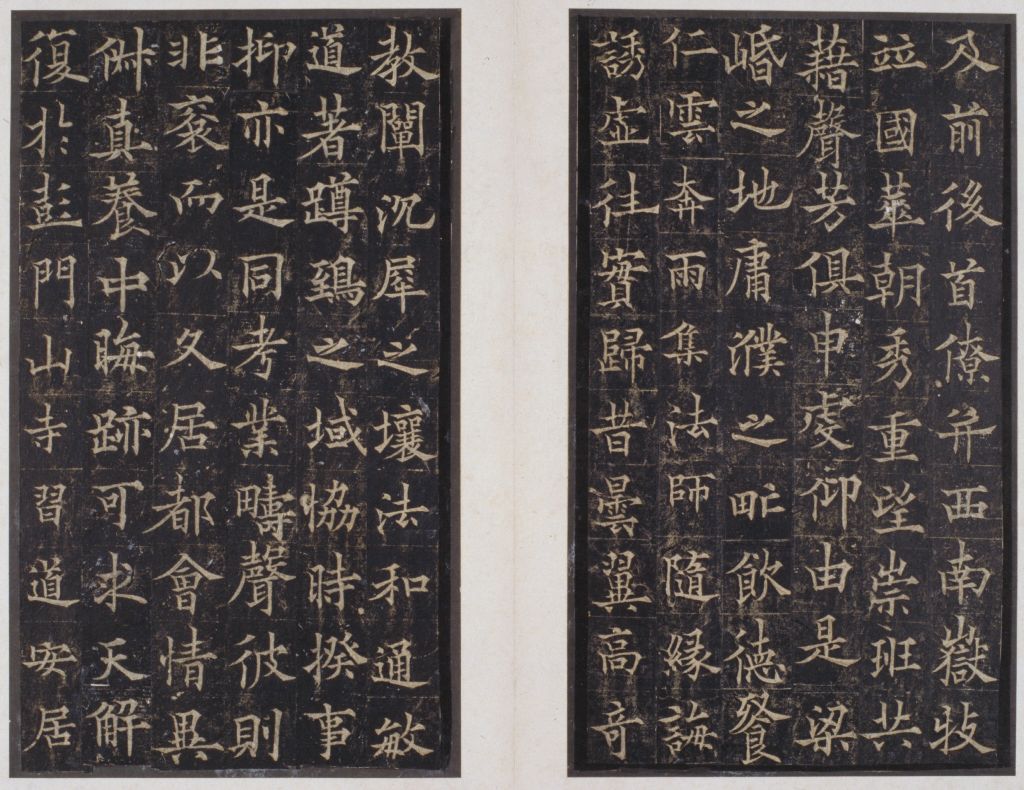 及前後首僚并西南嶽牧
竝國華朝秀重望崇班共
藉聲芳俱申虔仰由是梁
崏之地庸濮之甿飲德飡
仁雲奔雨集法師隨緣誨
誘虛往實歸昔曇翼高奇
教闡沉犀之壤法和通敏
道著蹲鵄之域協時揆事
抑亦是同考業疇聲彼則
非衮而以久居都會情異
真養中晦跡可求天解
復於彭門山寺習道安居